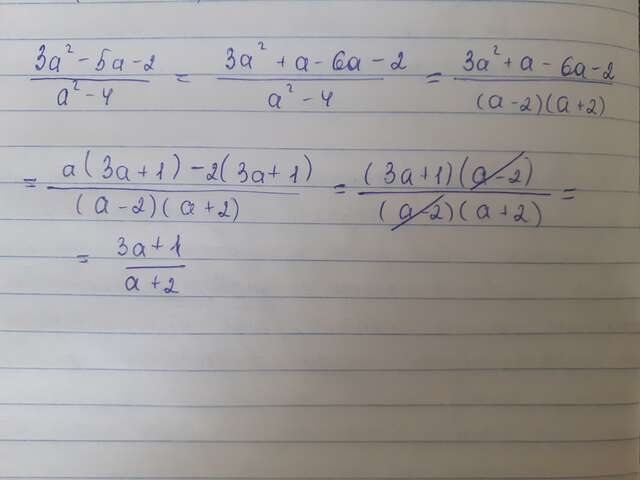 (3a² - 5a - 2)/(a² - 4) = (3a² + a - 6a - 2)/(a² - 4) = (3a² + a - 6a - 2)/((a - 2)(a + 2))
= (a(3a + 1) - 2(3a + 1))/((a - 2)(a + 2)) = ((3a + 1)(a - 2))/((a - 2)(a + 2)) =
= (3a + 1)/(a + 2)